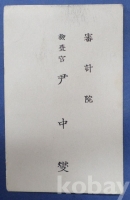 審計院
檢查官
尹中燮
kobay